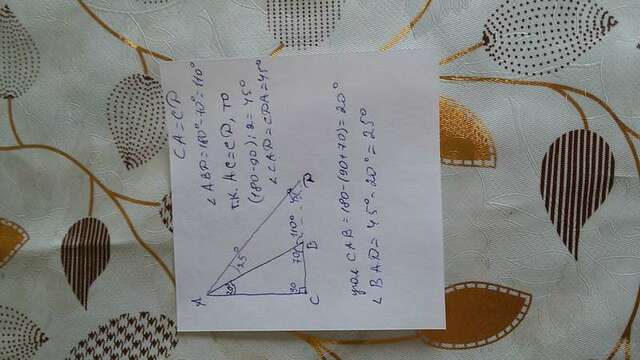 CA = CD
∠ABD = 180° - 70° = 110°
т.к. AC = CD, то
(180 - 90) : 2 = 45°
∠CAD = CDA = 45°
A
20°
25°
90
70°
110°
45°
C
B
D
угол CAB = 180 - (90 + 70) = 20°
∠BAD = 45° - 20° = 25°